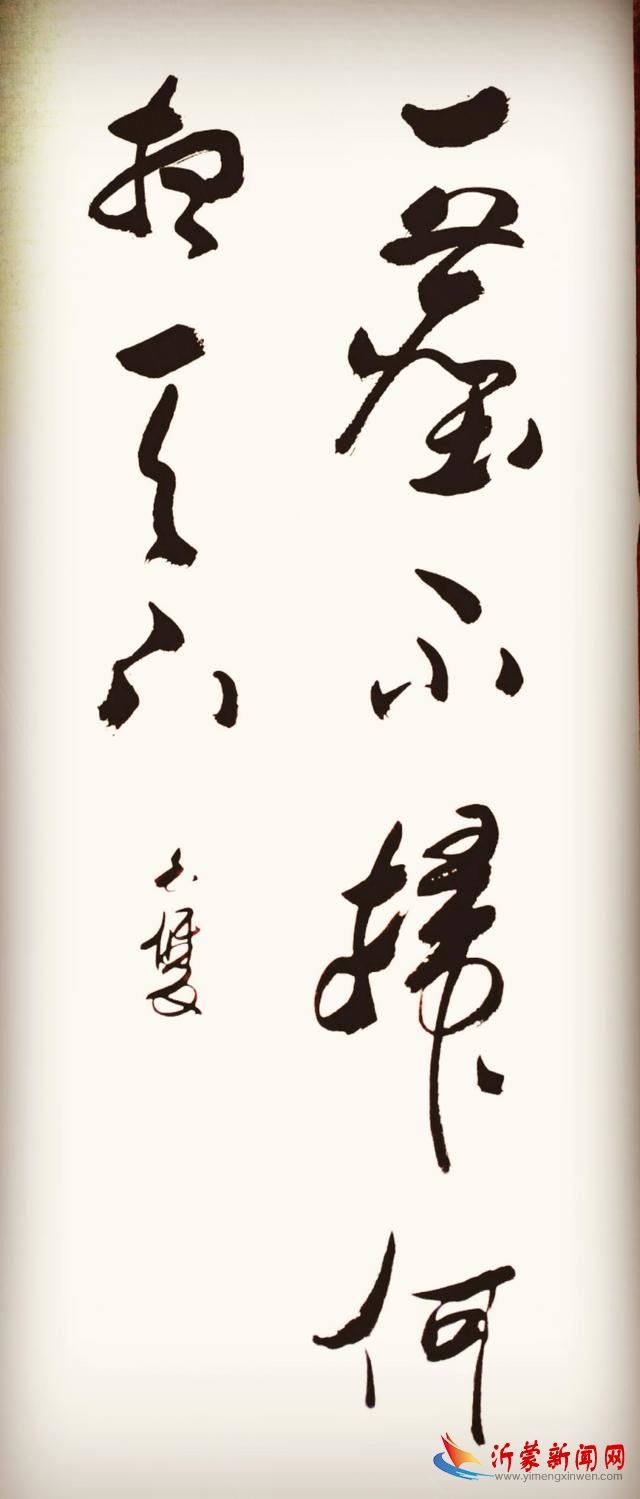 一塵不掃何
想天下
沂蒙新闻网
www.yimengxinwen.com